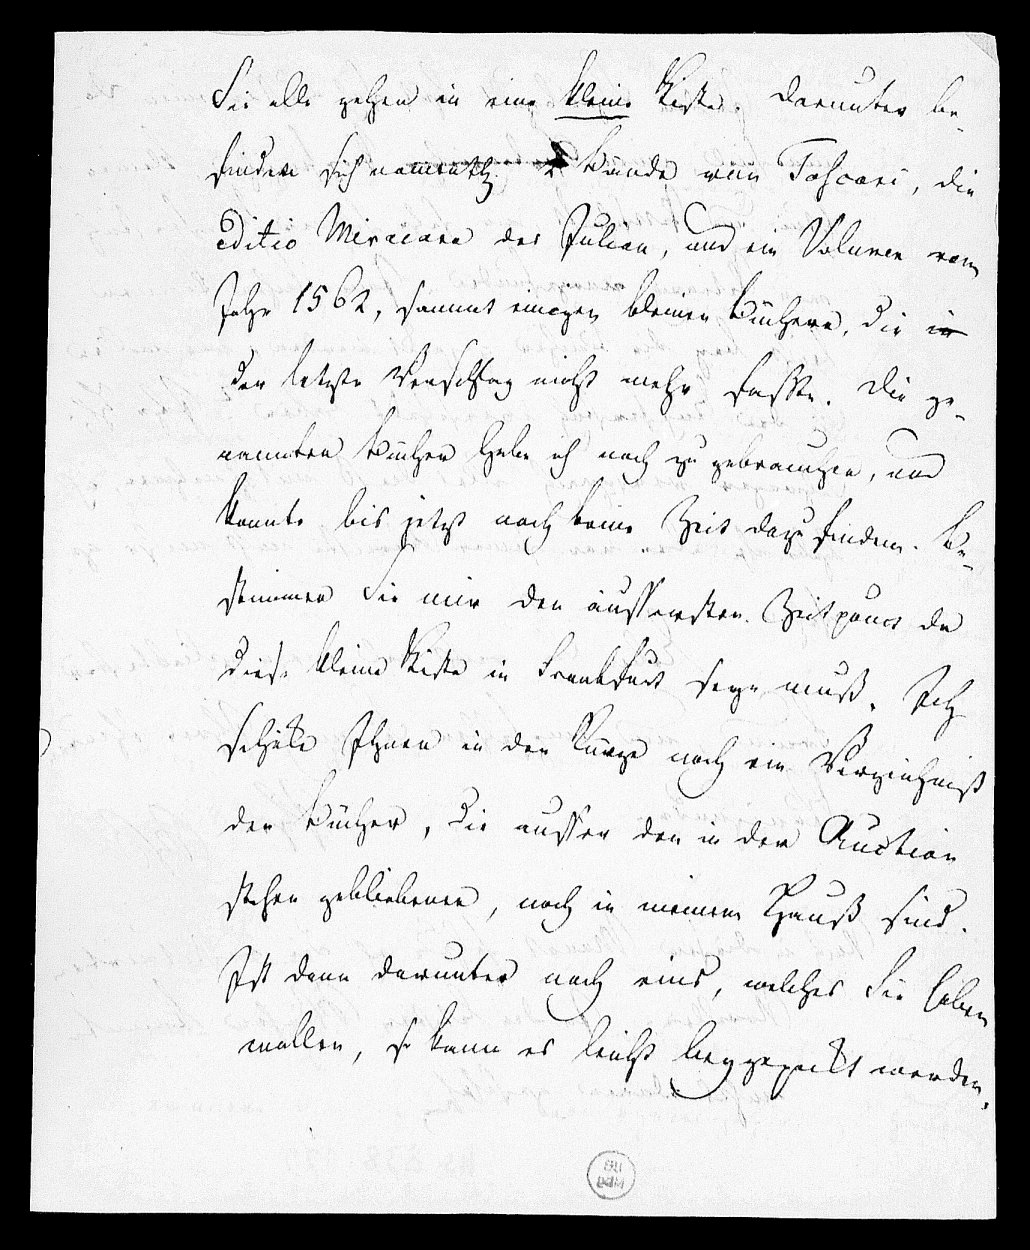 Sie alle gehen in eine kleine Kiste. Darunter be-
finden sich namentl. 2 Bände von Foscari, die
editio Miniciana des Julian, und ein Volumen vom
Jahr 1562, sammt einigen kleinen Büchern, die in
der letzte Verschlag nicht mehr faßte. Die ge-
nannten Bücher habe ich noch zu gebrauchen, und
konnte bis jetzt noch keine Zeit dazu finden. Be-
stimmen Sie mir den äussersten Zeitpunct da
diese kleine Kiste in Frankfurt seyn muß. Ich
schike Ihnen in der Kürze noch ein Verzeichniß
der Bücher, die ausser den in der Auction
stehen gebliebenen, noch in meinem Hauß sind.
Ist dann darunter noch eins, welches Sie haben
wollen, so kann es leicht beygepakt werden.